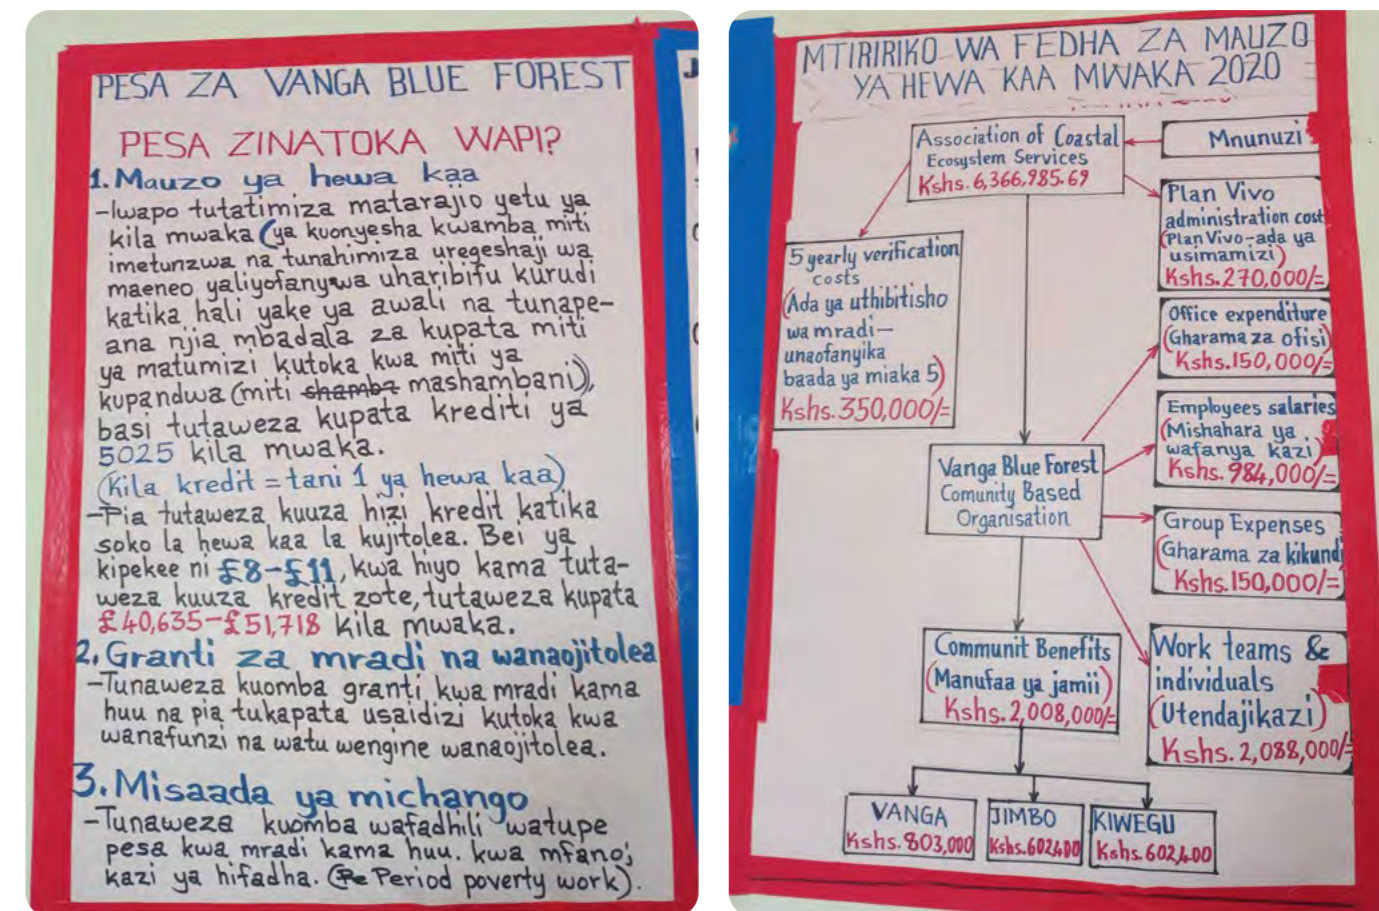 PESA ZA VANGA BLUE FOREST
PESA ZINATOKA WAPI?
1. Mauzo ya hewa kaa
-Iwapo tutatimiza matarajio yetu ya
kila mwaka (ya kuonyesha kwamba miti
imetunzwa na tunahimiza uregeshaji wa
maeneo yaliyofanywa uharibifu kurudi
katika hali yake ya awali na tunape-
ana njia mbadala za kupata miti
ya matumizi kutoka kwa miti ya
kupandwa (miti shamba mashambani)),
basi tutaweza kupata krediti ya
5025 kila mwaka.
(Kila kredit = tani 1 ya hewa kaa)
-Pia tutaweza kuuza hizi kredit katika
soko la hewa kaa la kujitolea. Bei ya
kipekee ni £8-£11, kwa hiyo kama tuta-
weza kuuza kredit zote, tutaweza kupata
£40,635-£51,718 kila mwaka.
2. Granti za mradi na wanaojitolea
-Tunaweza kuomba granti kwa mradi kama
huu na pia tukapata usaidizi kutoka kwa
wanafunzi na watu wengine wanaojitolea.
3. Misaada ya michango
-Tunaweza kuomba wafadhili watupe
pesa kwa mradi kama huu. kwa mfano;
kazi ya hifadha. (Pe Period poverty work).
MTIRIRIKO WA FEDHA ZA MAUZO
YA HEWA KAA MWAKA 2020
Association of Coastal
Ecosystem Services
Kshs. 6,366,985.69
Mnunuzi
Plan Vivo
administration cost
(Plan Vivo-ada ya
usimamizi)
Kshs. 270,000/=
5 yearly verification
costs
(Ada ya uthibitisho
wa mradi-
unaofanyika
baada ya miaka 5)
Kshs. 350,000/=
Office expenditure
(Gharama za ofisi)
Kshs. 150,000/=
Employees salaries
(Mishahara ya
wafanya kazi)
Kshs. 984,000/=
Vanga Blue Forest
Comunity Based
Organisation
Group Expenses
(Gharama za kikundi
Kshs. 150,000/=
Communit Benefits
(Manufaa ya jamii)
Kshs. 2,008,000/=
Work teams &
individuals
(Utendajikazi)
Kshs. 2,088,000/=
VANGA
Kshs. 803,000
JIMBO
Kshs. 602400
KIWEGU
Kshs. 602,400